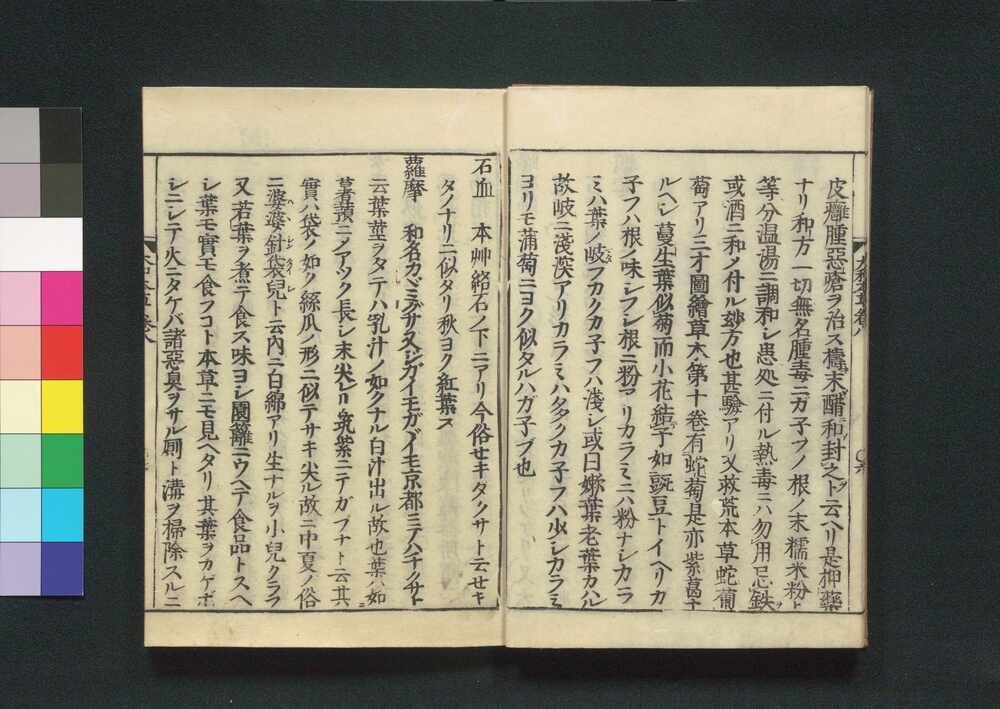 皮癰腫惡瘡ヲ治ス擣末醋和封之ト云ヘリ是抑藥
ナリ和方一切無名腫毒ニガ子フノ根ノ末糯米粉ト
等分温湯ニ調和シ患処ニ付ル熱毒ニハ勿用忌鉄
或酒ニ和メ付ル妙方也甚驗アリ又救荒本草蛇葡
萄アリ三才圖繪草木第十卷有蛇萄是亦紫葛ナ
ルヘシ蔓生葉似菊而小花結子如豌豆トイヘリカ
子フハ根ノ味シフシ根ニ粉アリカラミニハ粉ナシカラ
ミハ葉ノ岐フカクカ子フハ淺シ或曰嫩葉老葉カハル
故岐ニ淺深アリカラミハ多クカ子フハ少シカラミ
ヨリモ蒲萄ニヨク似タルハガ子ブ也
石血 本艸絡石ノ下ニアリ今俗セキタクサト云セキ
タノナリニ似タリ秋ヨク紅葉ス
蘿摩 和名カヾミグサ又シガイモガヾイモ京都ニテハチクサト
云葉莖ヲタテハ乳汁ノ如クナル白汁出ル故也葉ハ如
薯蕷ニメアツク長シ末尖レリ筑紫ニテガブナト云其
實ハ袋ノ如ク絲瓜ノ形ニ似テサキ尖ル故ニ中夏ノ俗
ニ婆婆針袋兒ト云内ニ白綿アリ生ナルヲ小兒クラフ
又若葉ヲ煮テ食ス味ヨシ園籬ニウヘテ食品トスヘ
シ葉モ實モ食フコト本草ニモ見ヘタリ其葉ヲカゲボ
シニシテ火ニタケバ諸惡臭ヲサル厠ト溝ヲ掃除スルニ